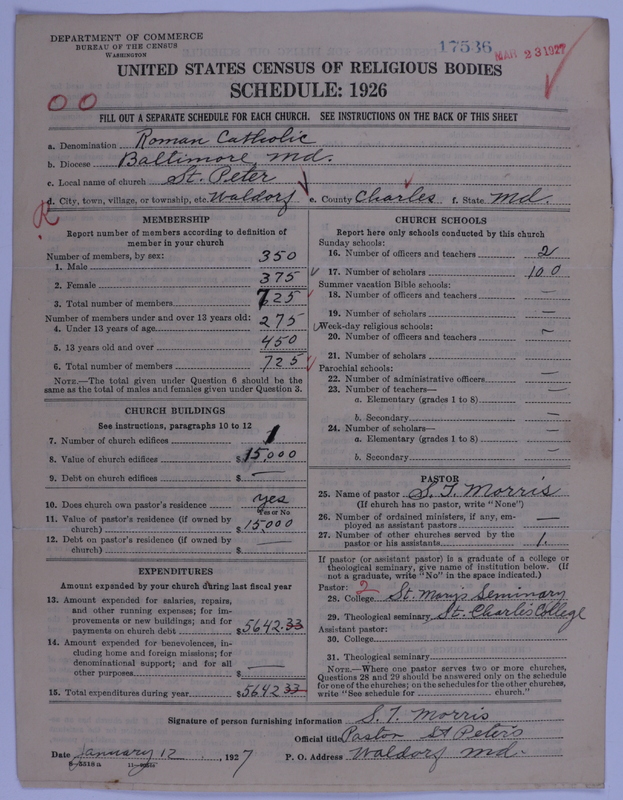 DEPARTMENT OF COMMERCE
BUREAU OF THE CENSUS
WASHINGTON
17536
MAR 23 1927
UNITED STATES CENSUS OF RELIGIOUS BODIES
SCHEDULE: 1926
FILL OUT A SEPARATE SCHEDULE FOR EACH CHURCH. SEE INSTRUCTIONS ON THE BACK OF THIS SHEET
a. Denomination Roman Catholic
b. Diocese Baltimore, Md.
c. Local name of church St. Peter
d. City, town, village, or township, etc. Waldorf e. County Charles f. State Md.
MEMBERSHIP
Report number of members according to definition of
member in your church
Number of members, by sex:
1. Male 350
2. Female 375
3. Total number of members 725
Number of members under and over 13 years old:
4. Under 13 years of age 275
5. 13 years old and over 450
6. Total number of members 725
NOTE.—The total given under Question 6 should be the
same as the total of males and females given under Question 3.
CHURCH BUILDINGS
See instructions, paragraphs 10 to 12
7. Number of church edifices 1
8. Value of church edifices $15,000
9. Debt on church edifices $ —
10. Does church own pastor's residence yes
Yes or No
11. Value of pastor's residence (if owned by
church) $15,000
12. Debt on pastor's residence (if owned by
church) $ —
EXPENDITURES
Amount expended by your church during last fiscal year
13. Amount expended for salaries, repairs,
and other running expenses; for im-
provements or new buildings; and for
payments on church debt $5642.33
14. Amount expended for benevolences, in-
cluding home and foreign missions; for
denominational support; and for all
other purposes $ —
15. Total expenditures during year $5642 33
CHURCH SCHOOLS
Report here only schools conducted by this church
Sunday schools:
16. Number of officers and teachers 2
17. Number of scholars 100
Summer vacation Bible schools:
18. Number of officers and teachers —
19. Number of scholars —
Week-day religious schools:
20. Number of officers and teachers —
21. Number of scholars
Parochial schools:
22. Number of administrative officers —
23. Number of teachers—
a. Elementary (grades 1 to 8) —
b. Secondary —
24. Number of scholars—
a. Elementary (grades 1 to 8) —
b. Secondary —
PASTOR
25. Name of pastor S. T. Morris
(If church has no pastor, write "None")
26. Number of ordained ministers, if any, em-
ployed as assistant pastors —
27. Number of other churches served by the
pastor or his assistants 1.
If pastor (or assistant pastor) is a graduate of a college or
theological seminary, give name of institution below. (If
not a graduate, write "No" in the space indicated.)
Pastor: 2
28. College St. Marys Seminary
29. Theological seminary St. Charles College
Assistant pastor:
30. College
31. Theological seminary
NOTE.—Where one pastor serves two or more churches,
Questions 28 and 29 should be answered only on the schedule
for one of the churches; on the schedules for the other churches,
write "See schedule for church."
Signature of person furnishing information S. T. Morris
Official title Pastor St Peters
Date January 12, 1927 P. O. Address Waldorf Md.
8-5518a